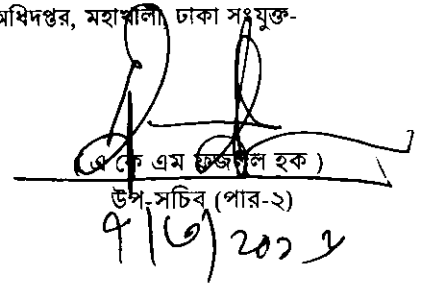 অধিদপ্তর, মহাখালী, ঢাকা সংযুক্ত-
( এ কে এম ফজলুল হক )
উপ-সচিব (পার-২)